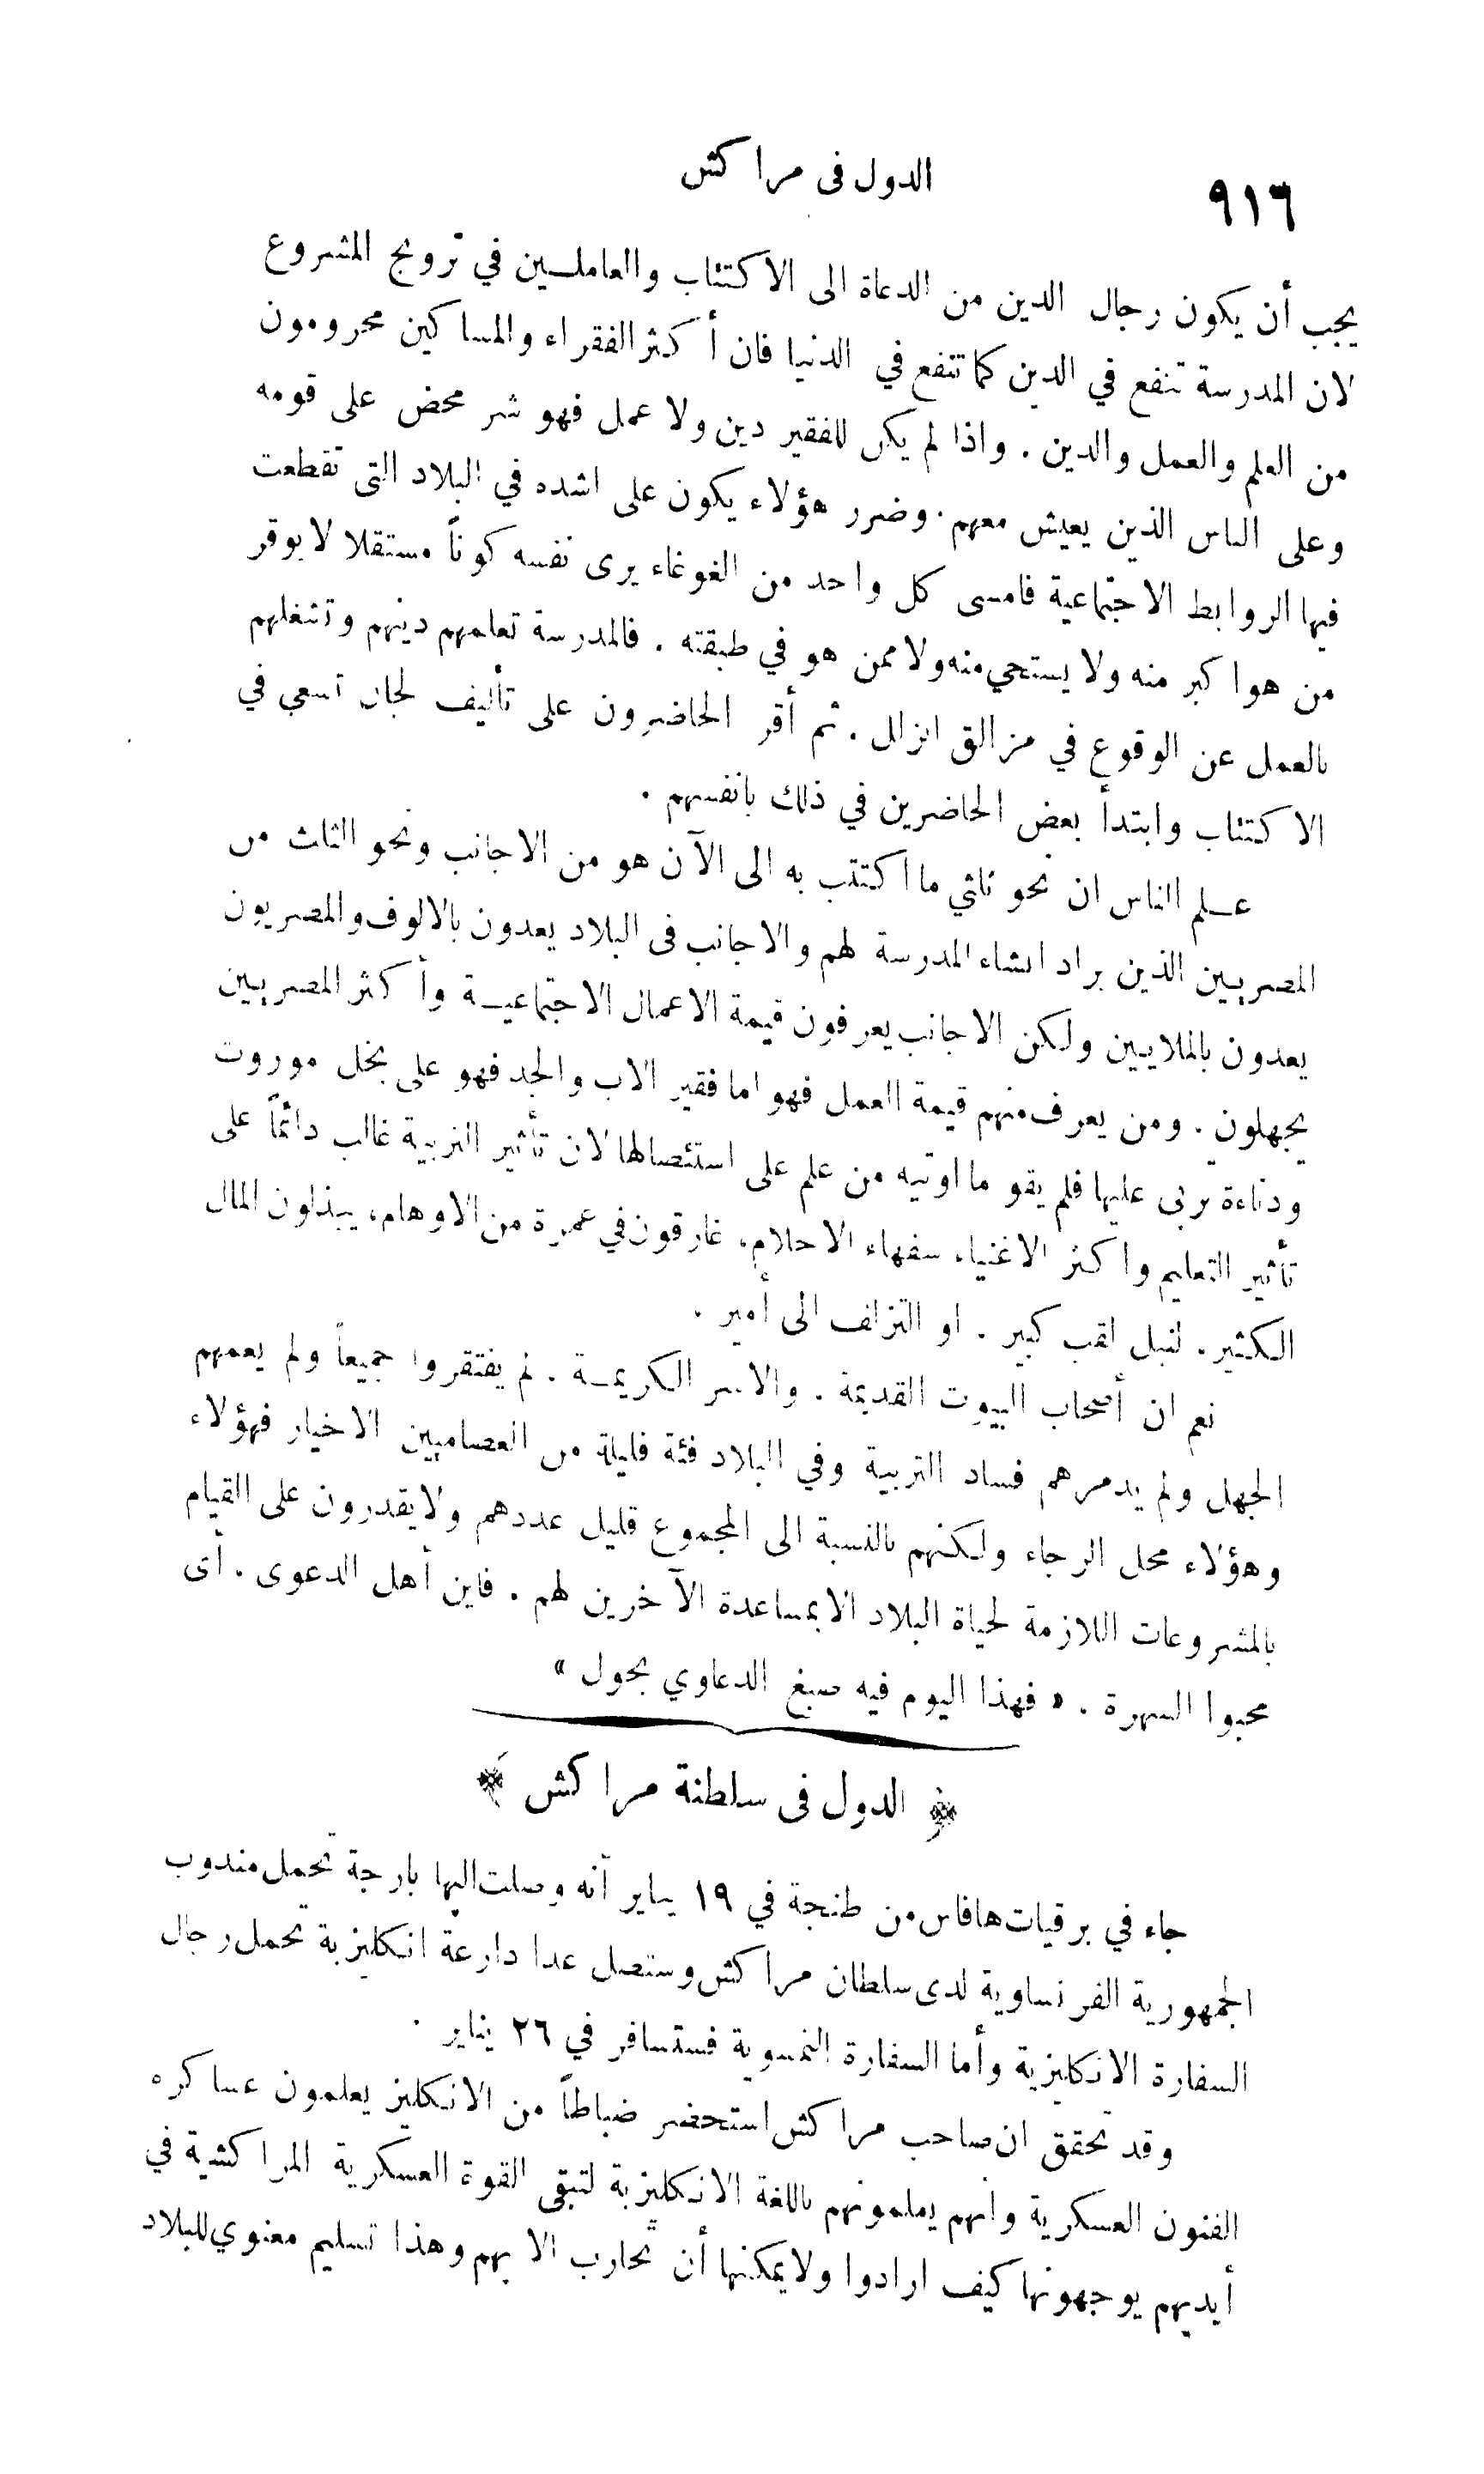 ٩١٦
الدول فى مراكش
يجب أن يكون رجال الدين من الدعاة الى الاكتتاب والعاملـين في ترويج المشروع
لان المدرسة تنفع في الدين كما تنفع في الدنيا فان أكثر الفقراء والمساكين محرومون
من العلم والعمل والدين . واذا لم يكن للفقير دين ولا عمل فهو شر محض على قومه
وعلى الناس الذين يعيش معهم . وضرر هؤلاء يكون على اشده في البلاد التى تقطعت
فيها الروابط الاجتماعية فامسى كل واحد من الغوغاء يرى نفسه كوناً مستقلا لا يوقر
من هو اكبر منه ولا يستحي منه ولا ممن هو في طبقته . فالمدرسة تعلمهم دينهم وتشغلهم
بالعمل عن الوقوع في مزالق الزلل . ثم أقر الحاضرون على تأليف لجان تسعي في
الاكتتاب وابتدأ بعض الحاضرين في ذلك بانفسهم .
عـلم الناس ان نحو ثلثي ما اكتتب به الى الآن هو من الاجانب ونحو الثلث من
المصريـين الذين يراد انشاء المدرسة لهم والاجانب فى البلاد يعدون بالالوف والمصريون
يعدون بالملايـين ولكن الاجانب يعرفون قيمة الاعمال الاجتماعيـة وأكثر المصريـين
يجهلون . ومن يعرف منهم قيمة العمل فهو اما فقير الاب والجد فهو على بخل موروث
ودناءة تربى عليها فلم يقو ما اوتيه من علم على استئصالها لان تأثير التربية غالب دائماً على
تأثير التعليم واكثر الاغنياء سفهاء الاحلام، غارقون في غمرة من الاوهام، يبذلون المال
الـكثير. لنيل لقب كبير . او التزلف الى أمير .
نعم ان أصحاب البيوت القديمة . والاسر الـكريمـة . لم يفتقروا جميعاً ولم يعمهم
الجهل ولم يدمرهم فساد التربية وفي البلاد فئة قليلة من العصاميين الاخيار فهؤلاء
وهؤلاء محل الرجاء ولـكنهم بالنسبة الى المجموع قليل عددهم ولا يقدرون على القيام
بالمشروعات اللازمة لحياة البلاد الا بمساعدة الآخرين لهم . فاين أهل الدعوى . أى
محبوا الشهرة . « فهذا اليوم فيه صبغ الدعاوي يحول »
﴿ الدول فى سلطنة مراكش ﴾
جاء في برقيات هافاس من طنجة في ١٩ يناير أنه وصلت اليها بارجة تحمل مندوب
الجمهورية الفرنساوية لدى سلطان مراكش وستصل غدا دارعة انكليزية تحمل رجال
السفارة الانكليزية وأما السفارة النمسوية فستسافر في ٢٦ يناير .
وقد تحقق ان صاحب مراكش استحضر ضباطاً من الانكليز يعلمون عساكره
الفنون العسكرية وانهم يعلمونهم باللغة الانـكليزية لتبقى القوة العسكرية المراكشية في
أيديهم يوجهونها كيف ارادوا ولا يمكنها أن تحارب الا بهم وهذا تسليم معنوي للبلاد